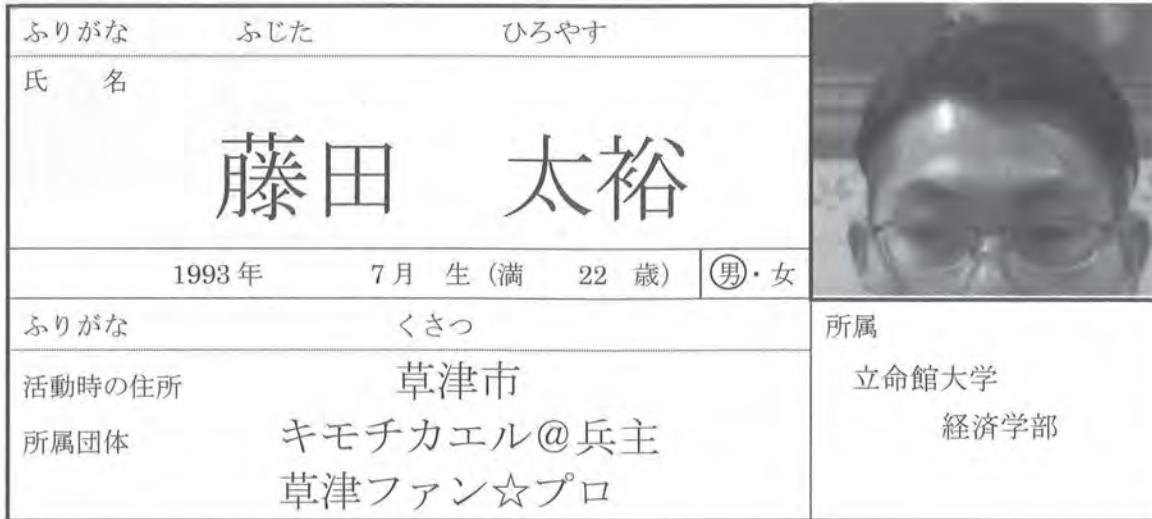 ふりがな ふじた ひろやす
氏 名
藤田 太裕
1993年 7月 生 (満 22 歳) 男・女
ふりがな くさつ
活動時の住所 草津市
所属団体 キモチカエル@兵主
草津ファン☆プロ
所属
立命館大学
経済学部